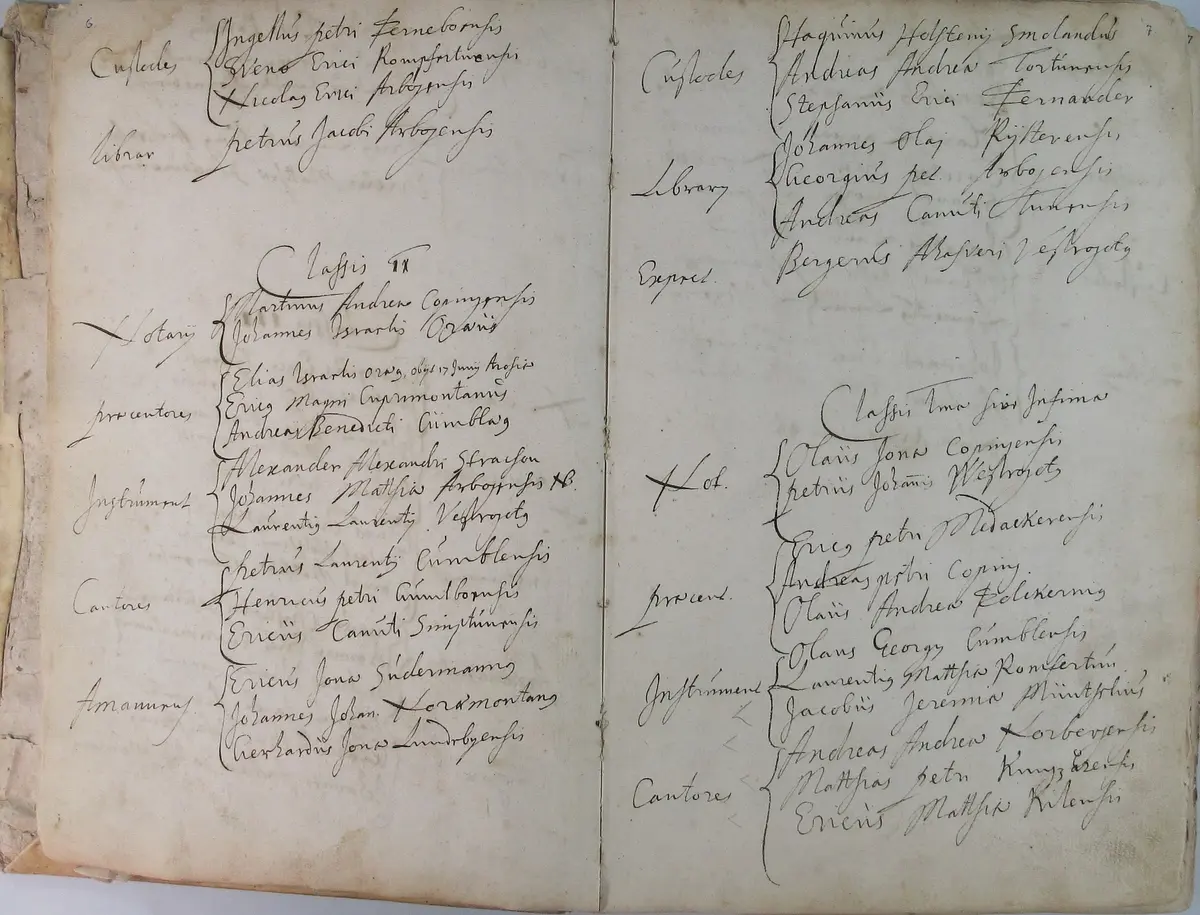 6
Custodes
Ingellus petri Ferneboensis
Sveno Erici Romfertuensis
Nicolaus Erici Arbogensis
Librar
petrus Jacobi Arbogensis
Classis II
Notarij
Martinus Andreæ Copingensis
Johannes Israelis Oraus
præcentores
Elias Israelis Oraus, obijt 17 Junij Arosiæ
Ericus Magni Cuprimontanus
Andreas Benedicti Cumblaus
Instrument
Alexander Alexandri Strachon
Johannes Matthiæ Arbogensis NB.
Laurentius Laurentij Vestrogotus
Cantores
Petrus Laurentij Cumblensis
Henricus petri
Ericus Canuti Simptunensis
Amanuens
Ericus Jonæ Sudermannus
Johannes Johan. Noræmontanus
Gerhardus Jonæ Lundebyensis
7
Custodes
Haquinus Holstenij Smolandus
Andreas Andreæ Tortunensis
Stephanus Erici Fernander
Library
Johannes Olaj
Georgius pet. Arbogensis
Andreas Canuti Tunensis
Expect.
Bergerus Ahasveri Vestrogotus
Classis Ima sive Infima
Not.
Olaus Jonæ Copingensis
petrus Johannis Westrogotus
præcent.
Ericus petri Medackerensis
Andreas petri Coping.
Olaus Andreæ
Instrument
Olaus Georgij Cumblensis
Laurentius Matthiæ Romfertun.
Jacobus Jeremiæ
Cantores
Andreas Andreæ Norbergensis
Matthias petri Kungzårensis
Ericus Matthiæ Kilensis